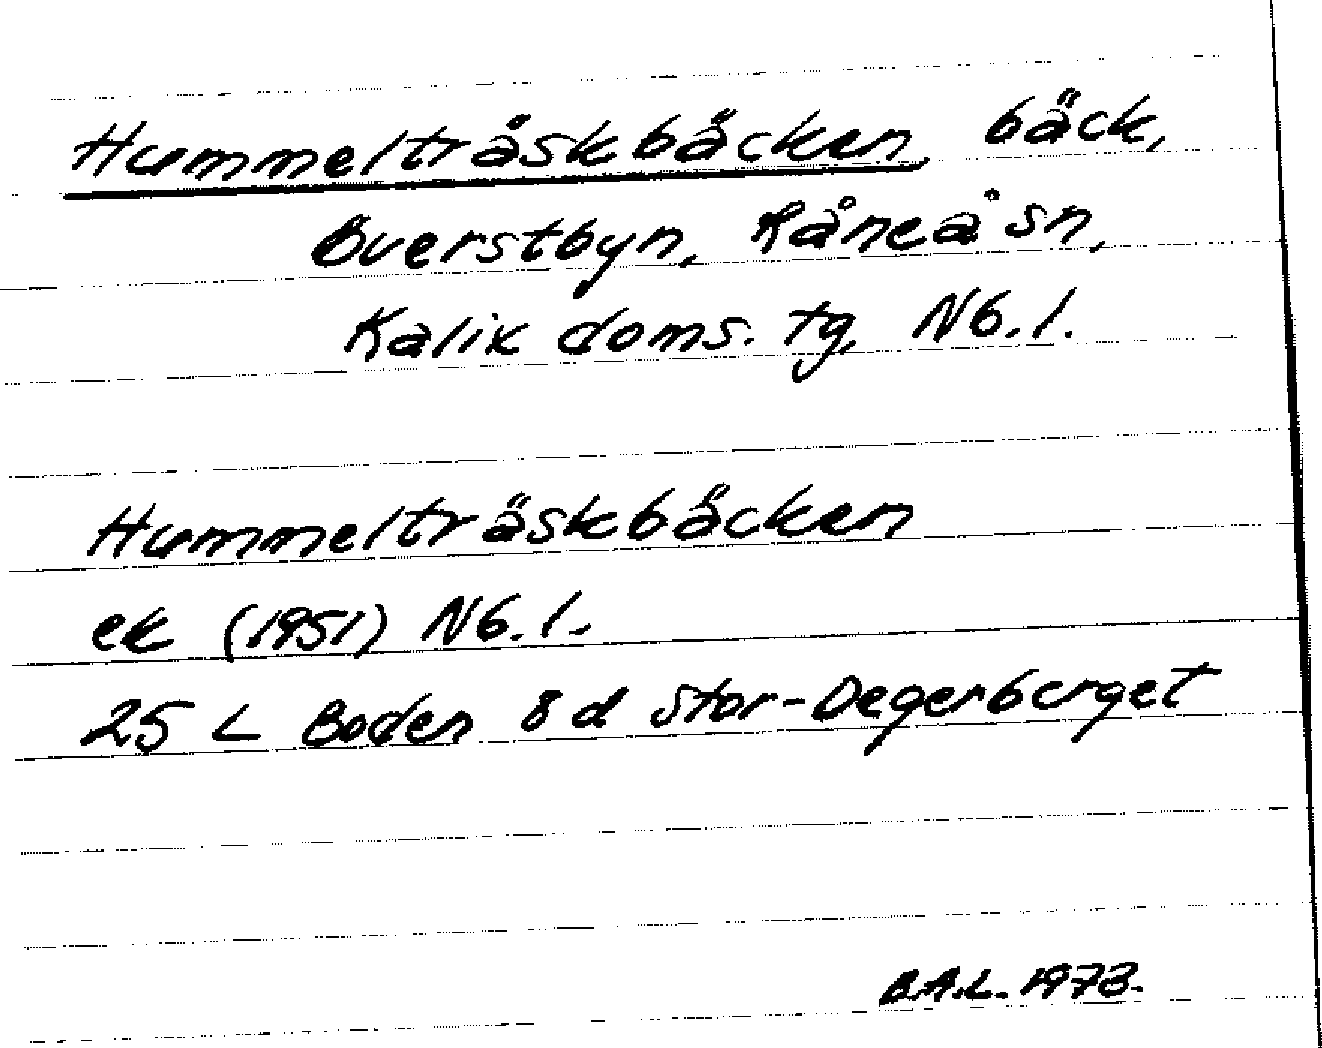 Hummelträskbäcken, bäck,
Överstbyn, Råneå sn,
Kalix doms. tg, Nb. l.
Hummelträskbäcken
ek (1951) Nb. l.
25 L Boden 8 d Stor-Degerberget
B.A.L. 1973.